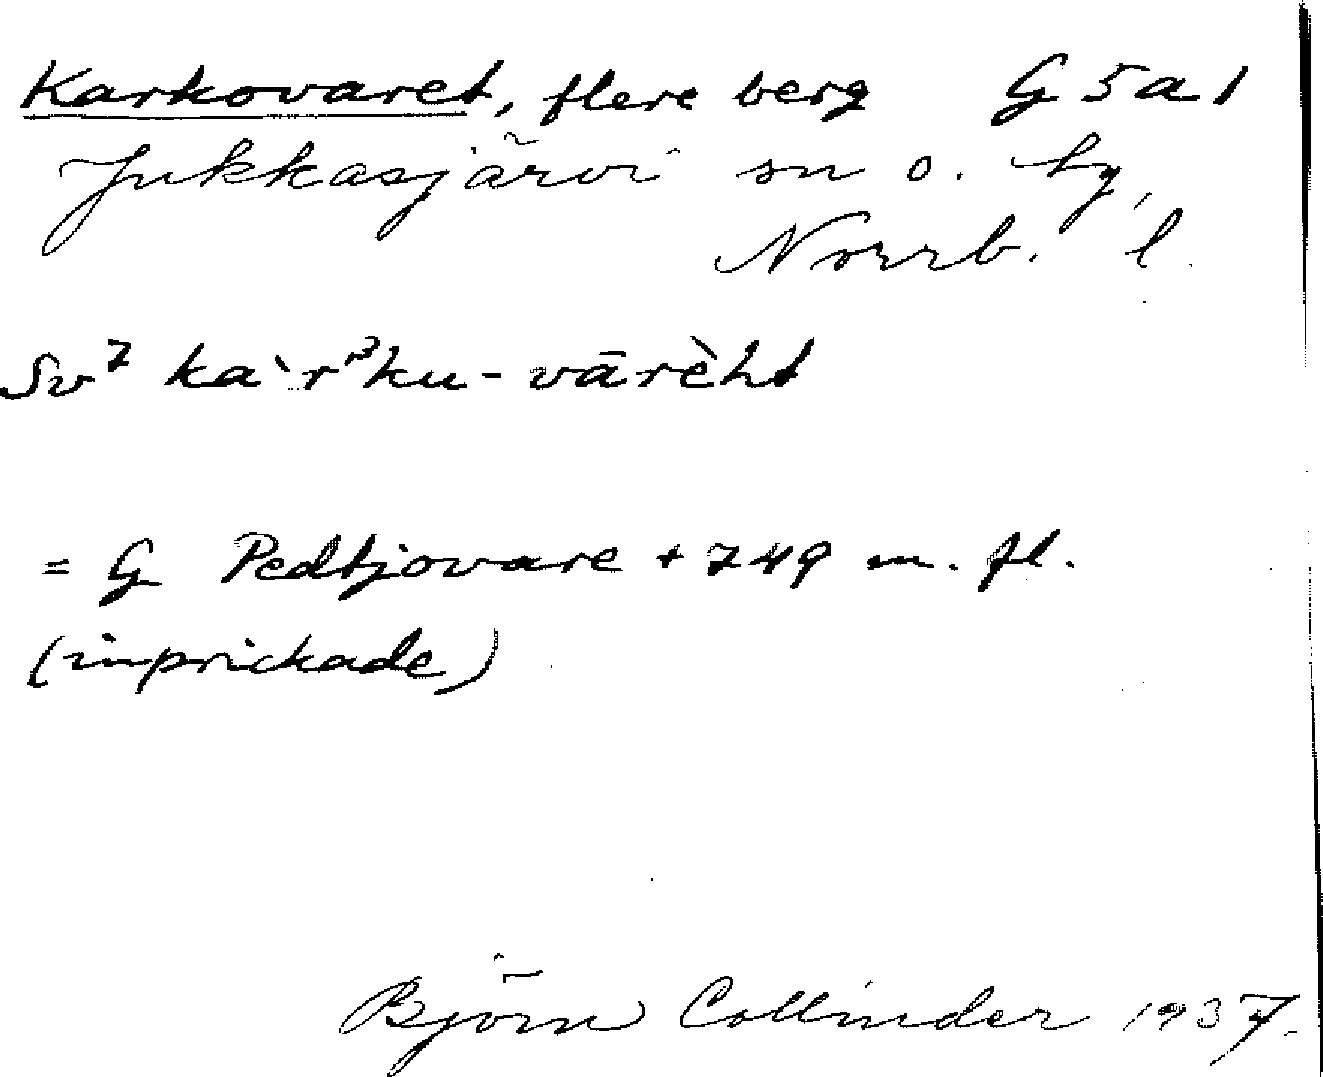 Karkovaret, flere berg G 5 a 1
Jukkasjärvi sn o. by,
Norrb. l.
Sv⁷ ka`rᵊku-vārèht
= G Pedtjovare + 749 m. fl.
(inprickade)
Björn Collinder 1937.